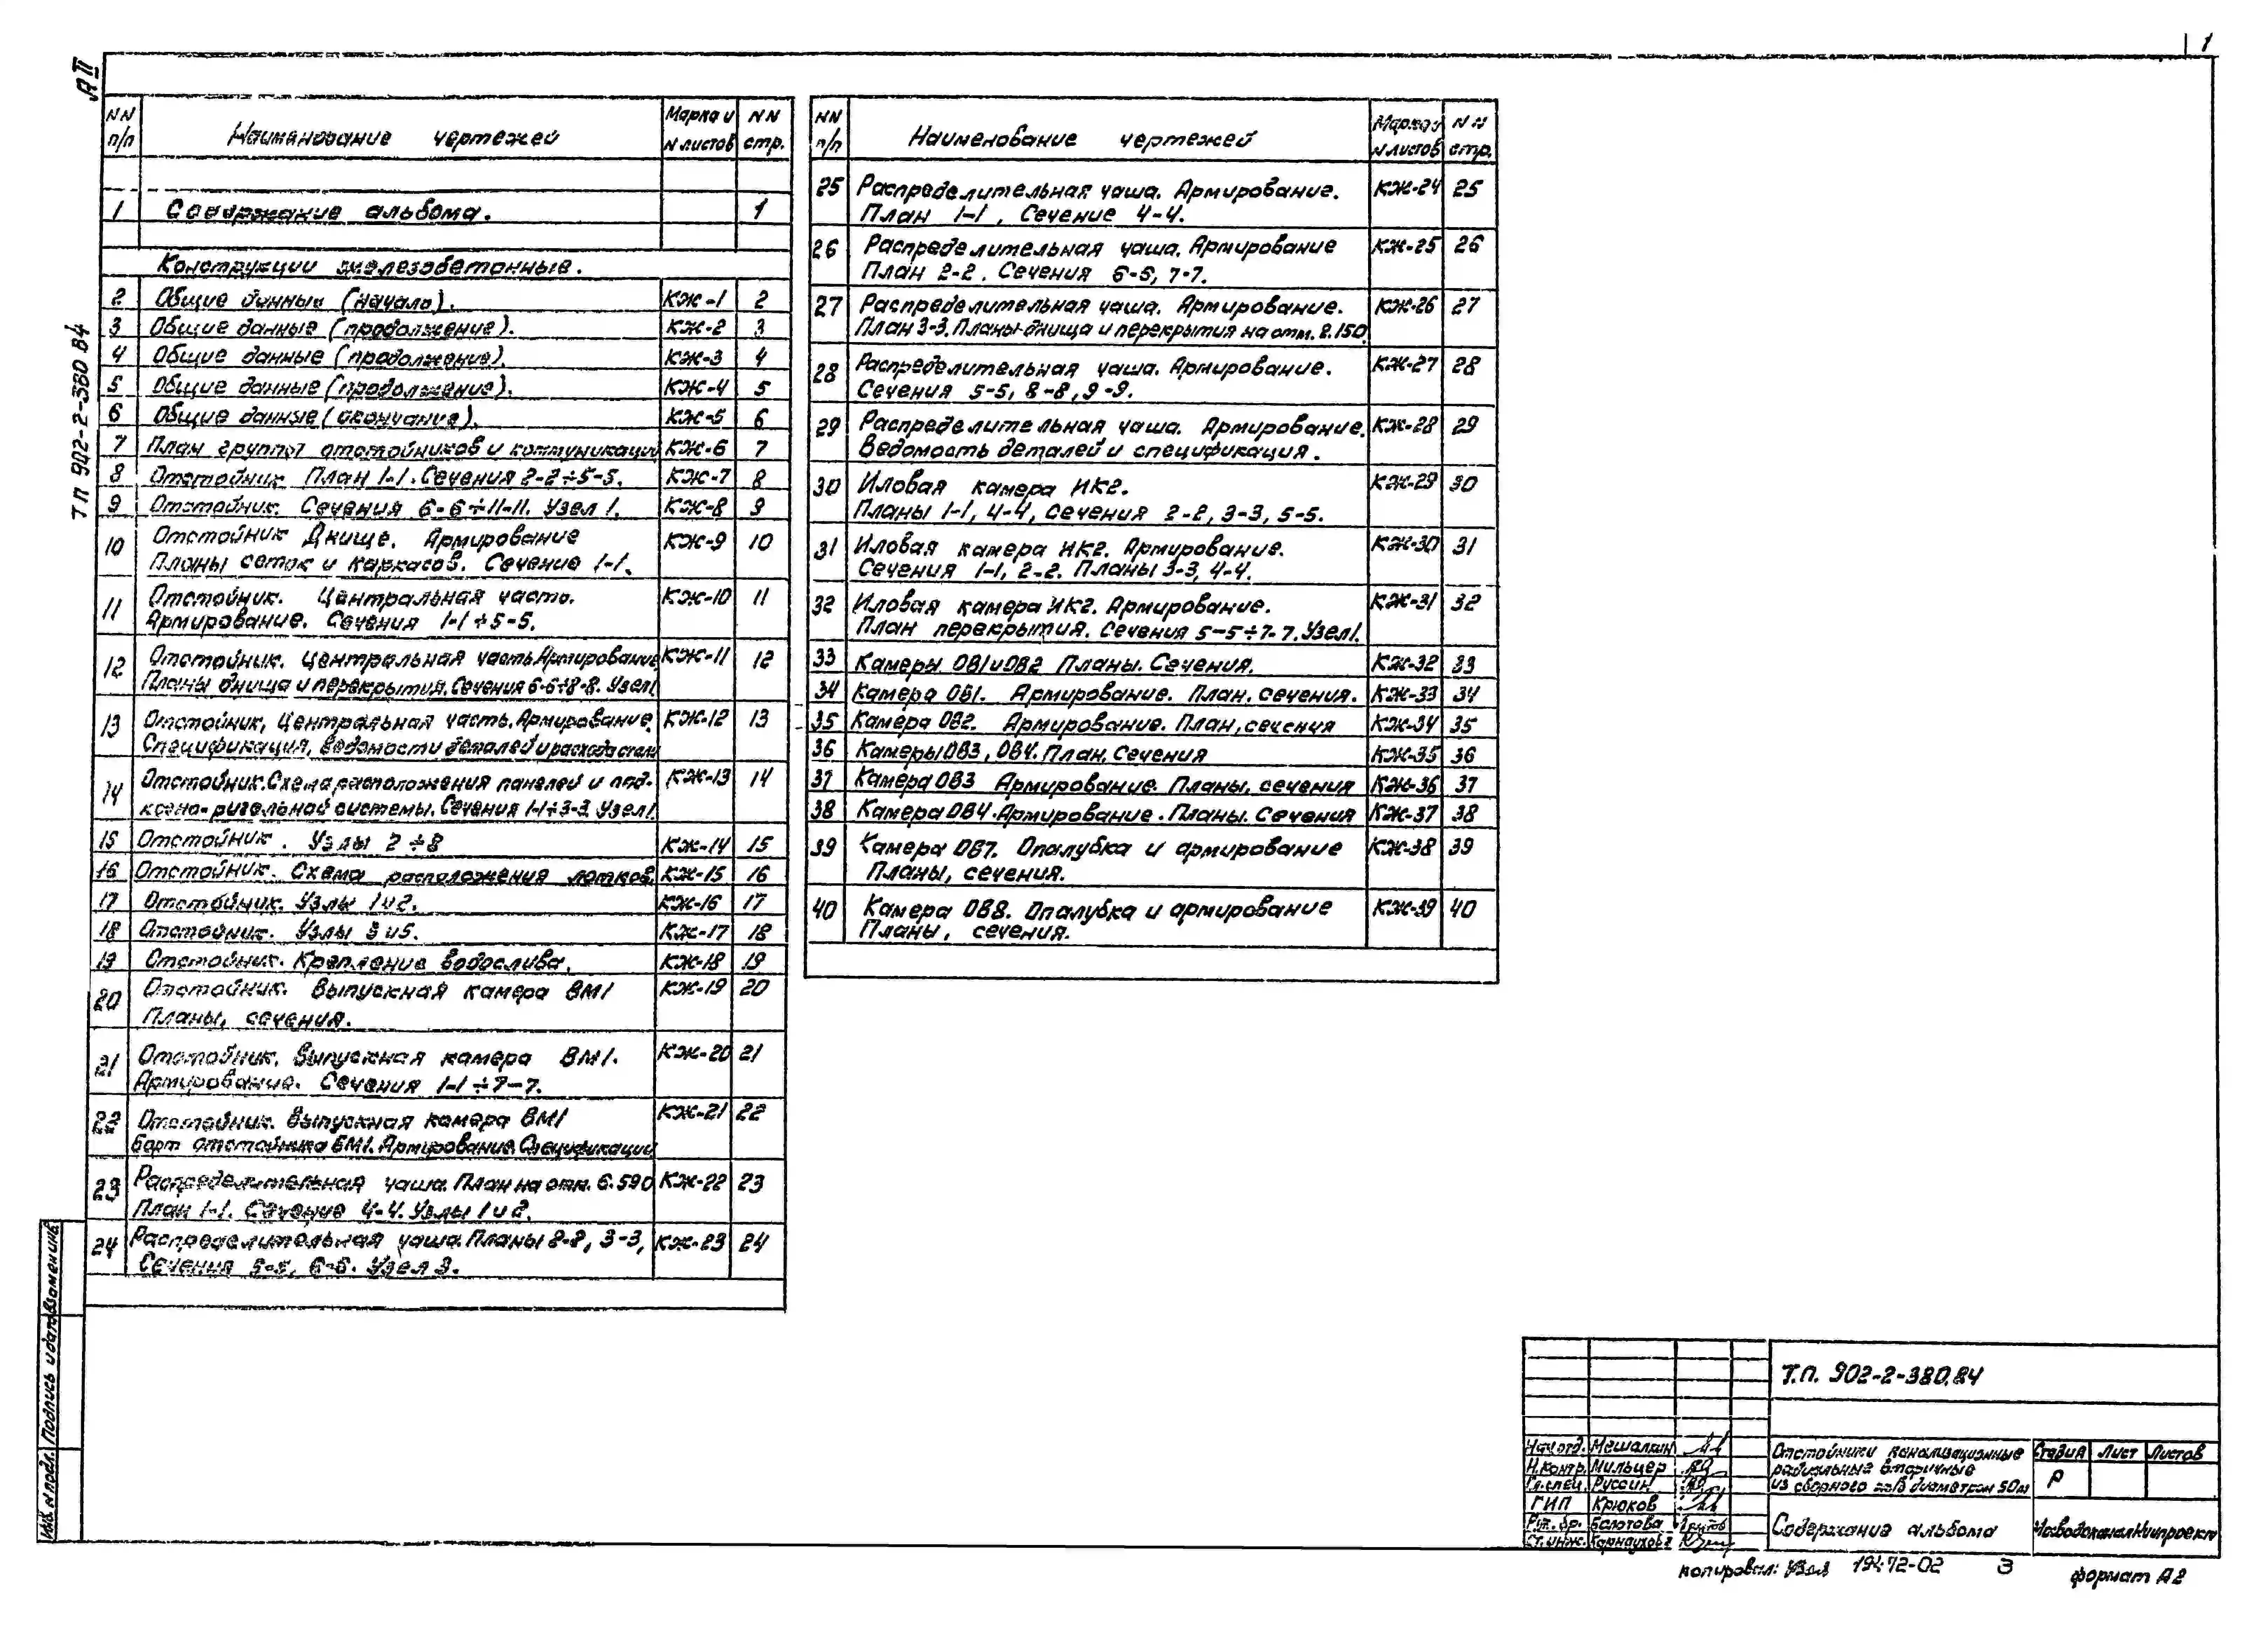 1
А II
ТП 902-2-380.84
NN п/п Наименование чертежей Марка и N листов NN стр.
1 Содержание альбома. 1
Конструкции железобетонные.
2 Общие данные (начало). КЖ-1 2
3 Общие данные (продолжение). КЖ-2 3
4 Общие данные (продолжение). КЖ-3 4
5 Общие данные (продолжение). КЖ-4 5
6 Общие данные (окончание). КЖ-5 6
7 План группы отстойников и коммуникаций КЖ-6 7
8 Отстойник План 1-1. Сечения 2-2÷5-5. КЖ-7 8
9 Отстойник. Сечения 6-6÷11-11. Узел 1. КЖ-8 9
10 Отстойник Днище. Армирование КЖ-9 10
Планы сеток и каркасов. Сечение 1-1.
11 Отстойник. Центральная часть. КЖ-10 11
Армирование. Сечения 1-1÷5-5.
12 Отстойник. Центральная часть. Армирование КЖ-11 12
Планы днища и перекрытия. Сечения 6-6÷8-8. Узел 1
13 Отстойник, Центральная часть. Армирование. КЖ-12 13
Спецификация, ведомости деталей и расхода стали
14 Отстойник. Схема расположения панелей и под- КЖ-13 14
косно-ригельной системы. Сечения 1-1÷3-3 Узел 1.
15 Отстойник. Узлы 2÷8 КЖ-14 15
16 Отстойник. Схема расположения лотков. КЖ-15 16
17 Отстойник. Узлы 1 и 2. КЖ-16 17
18 Отстойник. Узлы 3 и 5. КЖ-17 18
19 Отстойник. Крепление водослива. КЖ-18 19
20 Отстойник. Выпускная камера ВМ1 КЖ-19 20
Планы, сечения.
21 Отстойник. Выпускная камера ВМ1. КЖ-20 21
Армирование. Сечения 1-1÷7-7.
22 Отстойник. Выпускная камера ВМ1 КЖ-21 22
Борт отстойника БМ1. Армирование. Спецификации
23 Распределительная чаша. План на отм. 6.590 КЖ-22 23
План 1-1. Сечение 4-4. Узлы 1 и 2.
24 Распределительная чаша. Планы 2-2, 3-3, КЖ-23 24
Сечения 5-5, 6-6. Узел 3.
NN п/п Наименование чертежей Марка и N листов NN стр.
25 Распределительная чаша. Армирование. КЖ-24 25
План 1-1, Сечение 4-4.
26 Распределительная чаша. Армирование КЖ-25 26
План 2-2. Сечения 6-6, 7-7.
27 Распределительная чаша. Армирование. КЖ-26 27
План 3-3. Планы днища и перекрытия на отм. 2.150
28 Распределительная чаша. Армирование. КЖ-27 28
Сечения 5-5, 8-8, 9-9.
29 Распределительная чаша. Армирование. КЖ-28 29
Ведомость деталей и спецификация.
30 Иловая камера ИК2. КЖ-29 30
Планы 1-1, 4-4, Сечения 2-2, 3-3, 5-5.
31 Иловая камера ИК2. Армирование. КЖ-30 31
Сечения 1-1, 2-2. Планы 3-3, 4-4.
32 Иловая камера ИК2. Армирование. КЖ-31 32
План перекрытия. Сечения 5-5÷7-7. Узел 1.
33 Камеры ОВ1 и ОВ2 Планы. Сечения. КЖ-32 33
34 Камера ОВ1. Армирование. План, сечения. КЖ-33 34
35 Камера ОВ2. Армирование. План, сечения КЖ-34 35
36 Камеры ОВ3, ОВ4. План. Сечения КЖ-35 36
37 Камера ОВ3 Армирование. Планы, сечения КЖ-36 37
38 Камера ОВ4. Армирование. Планы. Сечения КЖ-37 38
39 Камера ОВ7. Опалубка и армирование КЖ-38 39
Планы, сечения.
40 Камера ОВ8. Опалубка и армирование КЖ-39 40
Планы, сечения.
Инв. N подл. Подпись и дата Взамен инв.
Т.П. 902-2-380.84
Нач. отд. Мешалкин
Н. контр. Мильцер
Гл. спец. Руссин
ГИП Крюков
Рук. бр. Болотова
Ст. инж. Карнаухова
Отстойники канализационные
радиальные вторичные
из сборного ж/б диаметром 50м
Стадия Лист Листов
Р
Содержание альбома
МосводоканалНиипроект
Копировал: 19472-02 3 формат А2